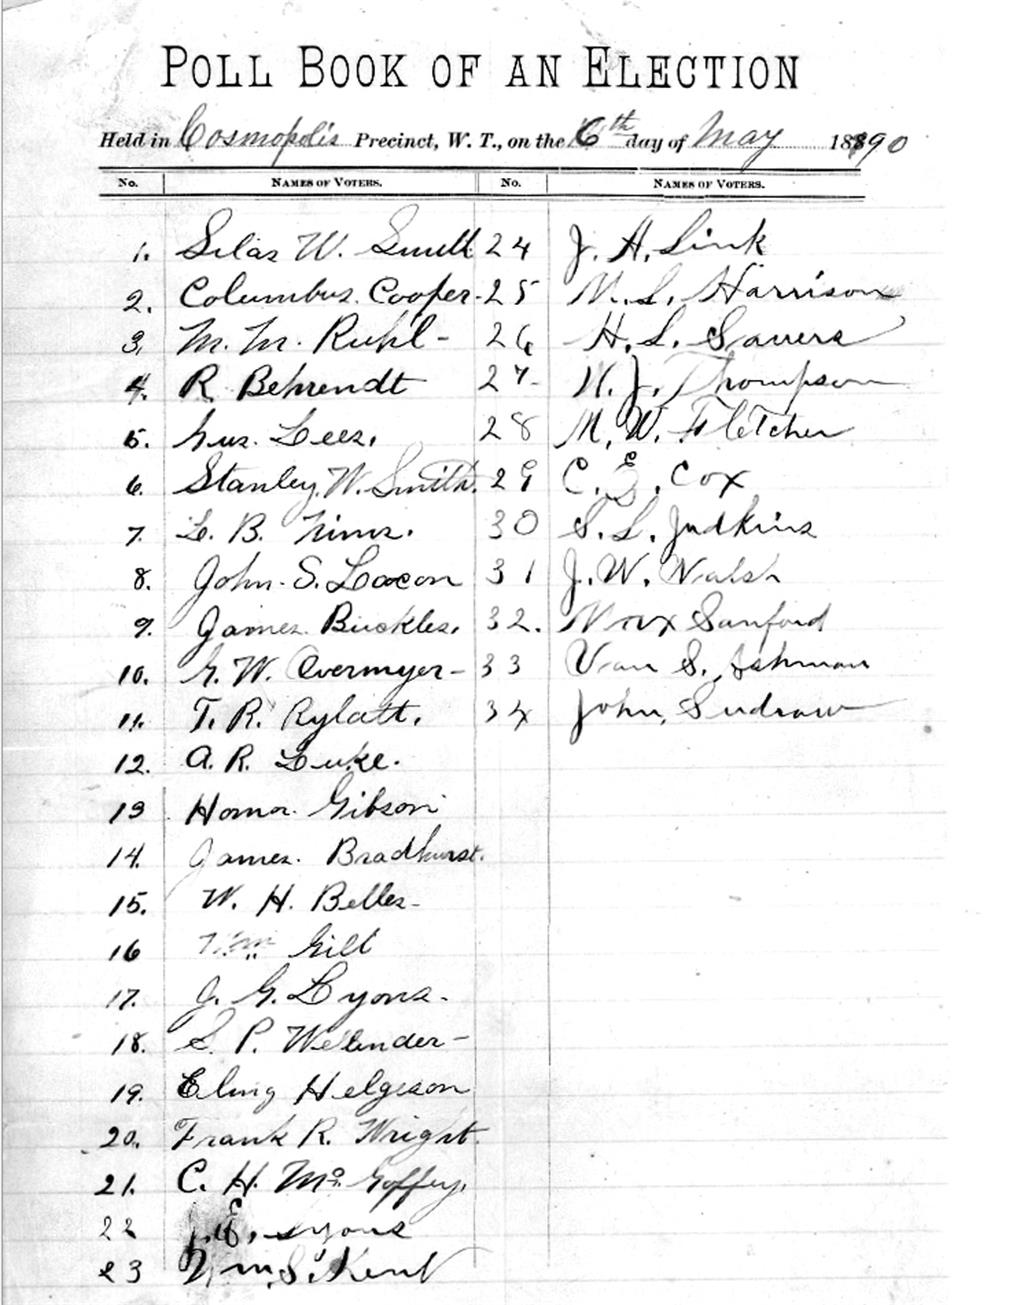 POLL BOOK OF AN ELECTION
Held in Cosmopolis Precinct, W. T., on the 6th day of May 1890
No. NAMES OF VOTERS. No. NAMES OF VOTERS.
1. Silas W. Smith 24 J. H. Link
2. Columbus Cooper - 25 M. L. Harrison
3. M. M. Ruhl - 26 H. L. Sauers
4. R Behrendt 27 - N. J. Thompson
5. Gus. Lees. 28 M. W. Fletcher
6. Stanley W. Smith. 29 C. E. Cox
7. L. B. Nims. 30 S. L. Judkins
8. John S. Loacon 31 J. W. Walsh
9. James Buckles. 32. Sanford
10. G. W. Overmyer - 33 Van S. Ishman
11. T. R. Rylatt. 34 John
12. A. R. Luke.
13 Homer Gibson
14. James. Bradhurst.
15. W. H. Belles -
16 Wm Gilt
17. J. G. Lyons -
18. S. P. Welander -
19. Eling Helgeson
20. Frank R. Wright.
21. C. H. Mc Goffey.
22 J. E. Lyons
23 Wm S. Kent